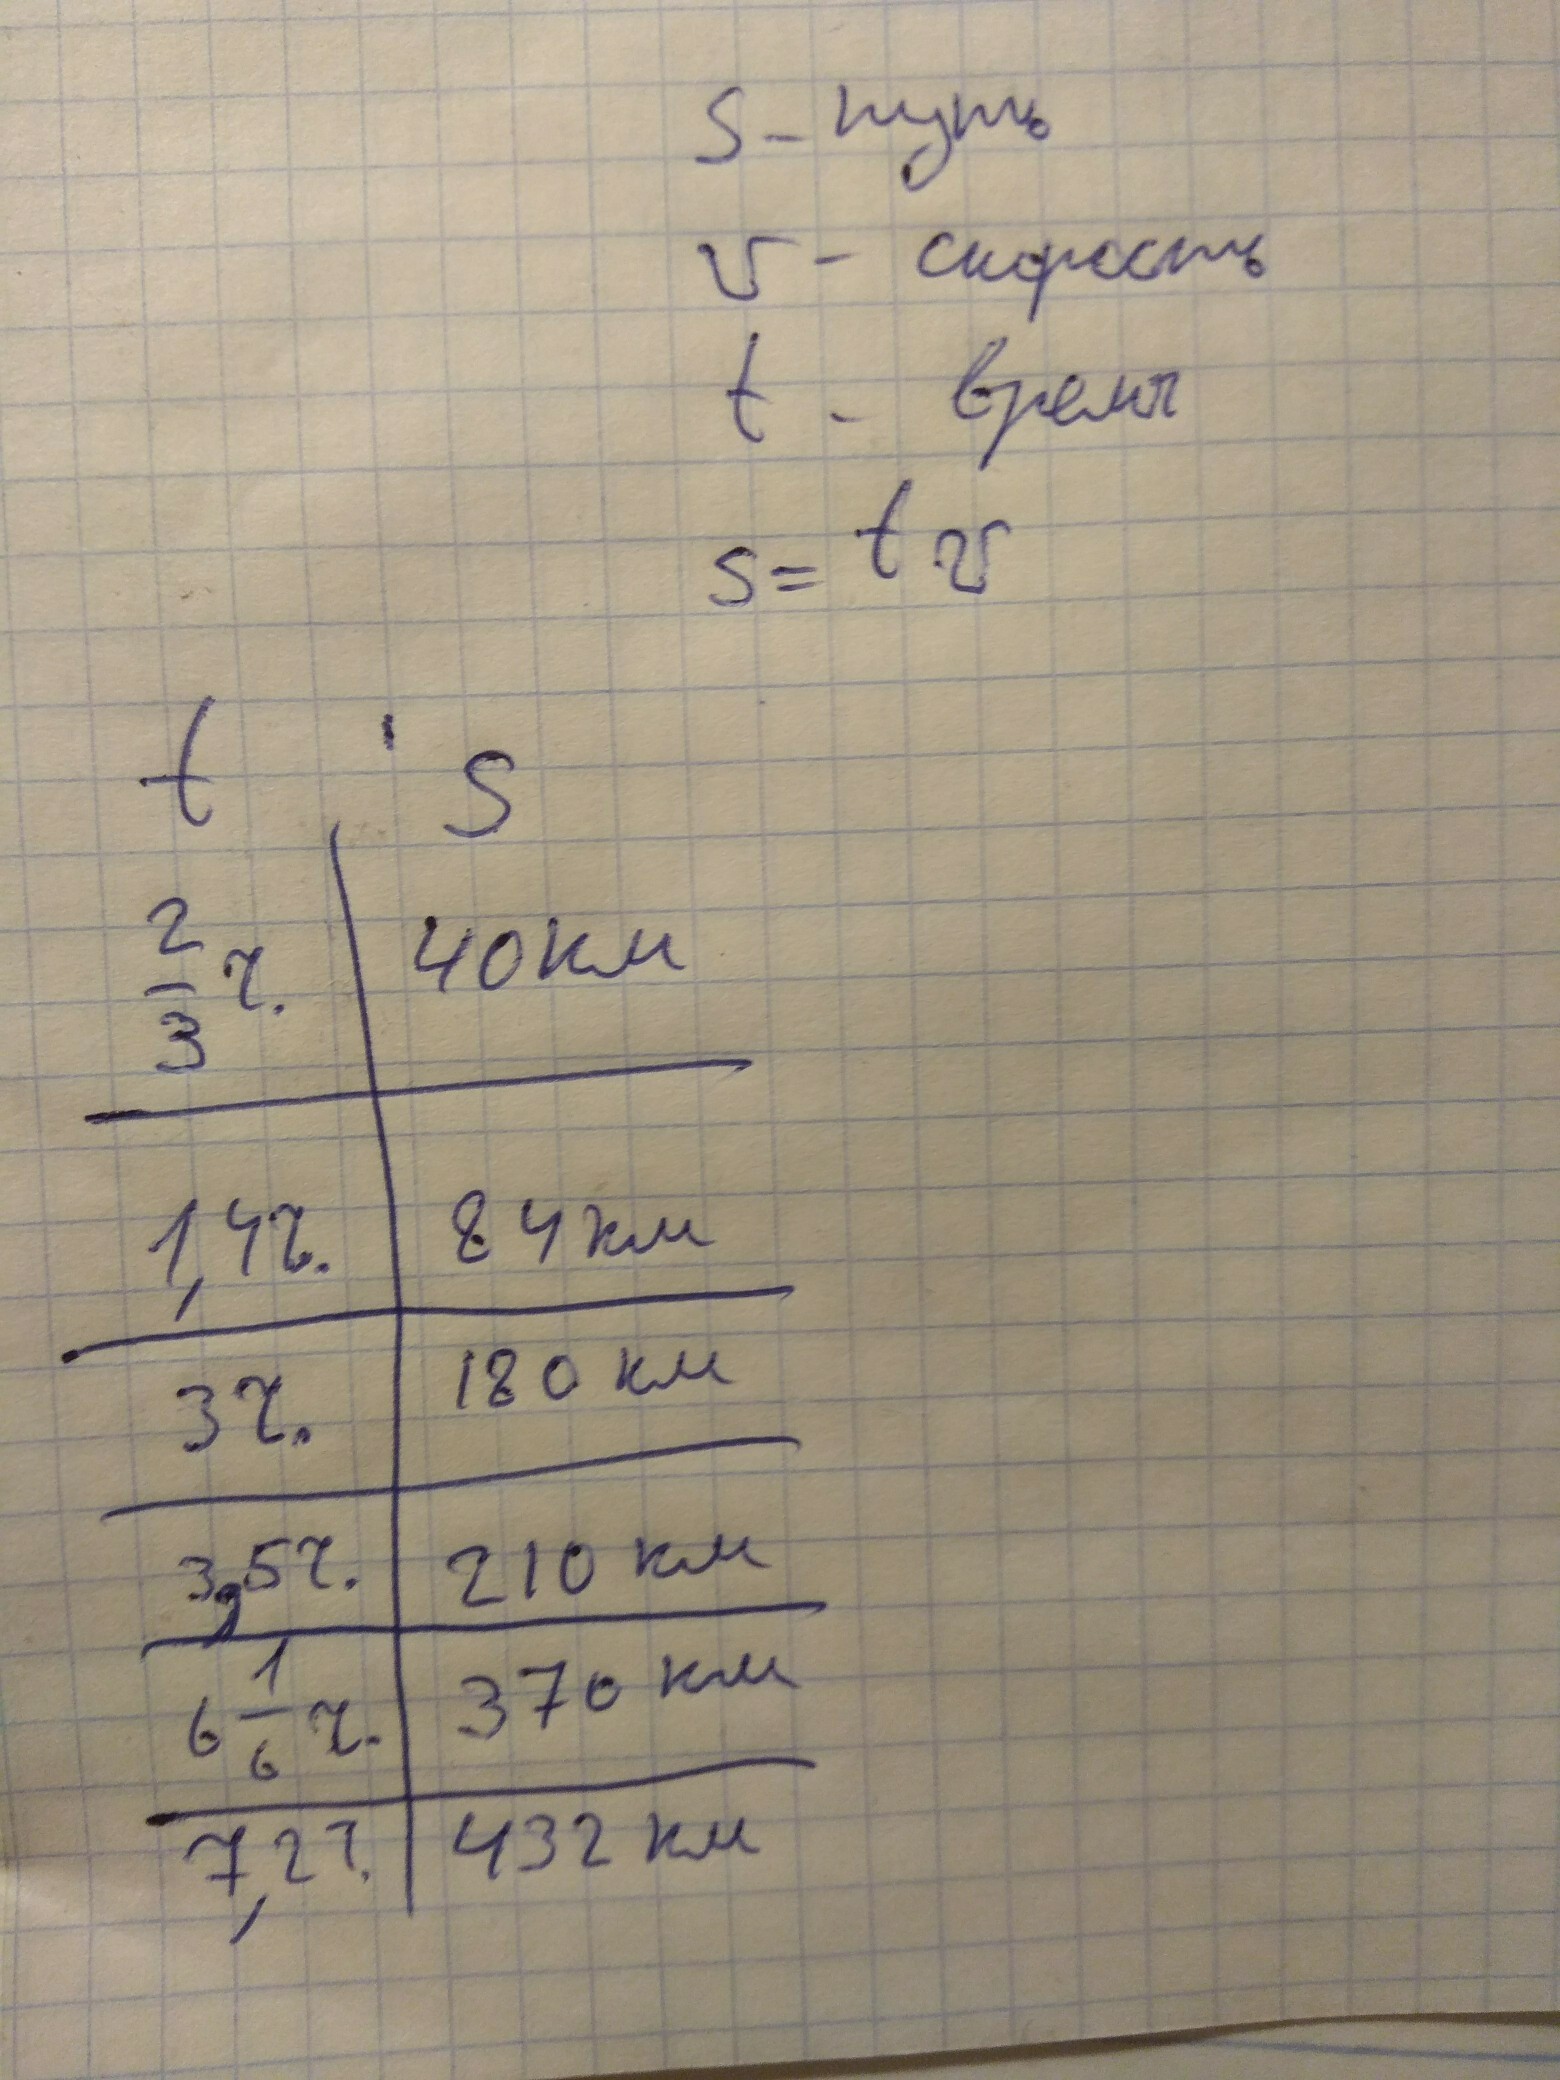 S - путь
v - скорость
t - время
S = t v
t S
2/3 ч. 40 км
1,4 ч. 84 км
3 ч. 180 км
3,5 ч. 210 км
6 1/6 ч. 370 км
7,2 ч. 432 км